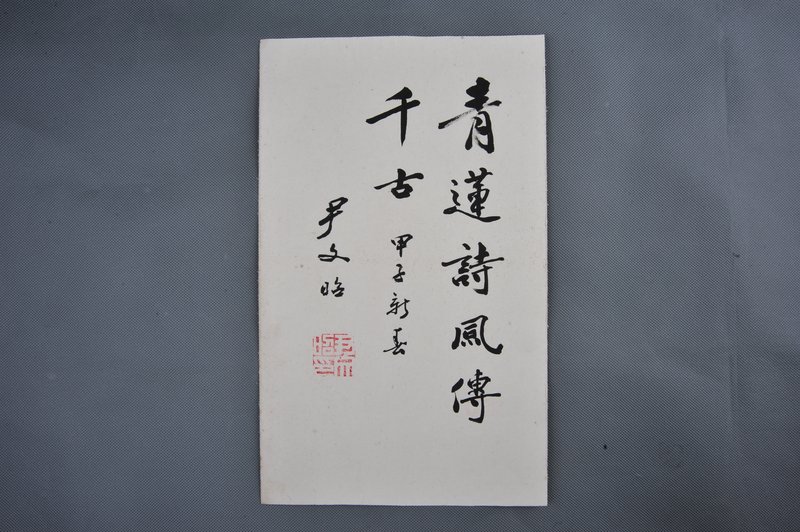 青蓮詩風傳
千古 甲子新春
尹文昭